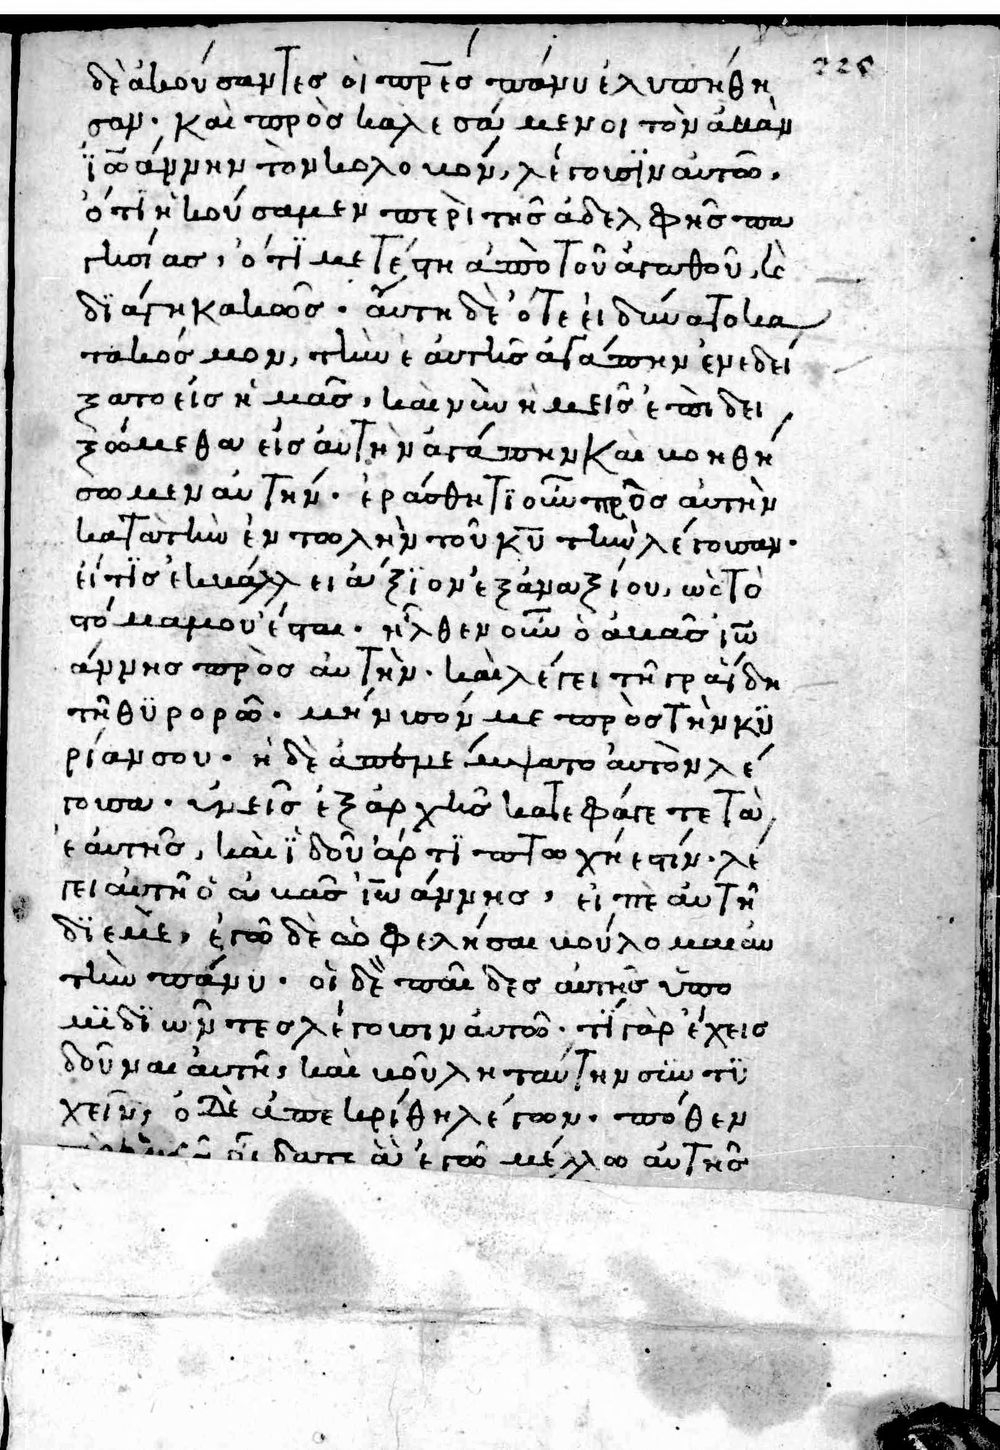 δὲ ἀκούσαντες οἱ πρες πάνυ ἐλυπήθη
σαν· καὶ προσκαλεσάμενοι τὸν ἀββᾶν
ἰωάννην τὸν κολοβόν, λέγουσιν αὐτῶ,
ὅτι ἠκούσαμεν περὶ τῆς ἀδελφῆς πα
ησίας, ὅτι μετέστη ἀπὸ τοῦ ἀγαθοῦ, καὶ
διάγη κακῶς· αὕτη δὲ ὅτε εἰδύνατο κα
τα κόσμον, τὴν ἑαυτῆς ἀγάπην ἐνεδεί
ξατο εἰς ἡμᾶς, καὶ νῦν ἡμεῖς ἐπιδει
ξώμεθα εἰς αὐτὴν ἀγάπην καὶ βοηθή
σωμεν αὐτήν· ἐράσθητι οὖν πρὸς αὐτὴν
κατὰ τὴν ἐντωλὴν τοῦ κυ τὴν λέγουσαν·
εἴ τις ἐκβάλλει ἄξιον ἐξ ἀναξίου, ὡς τὸ
στόμα μου ἔσται· ἦλθεν οὖν ὁ ἀββᾶς ἰω
άννης πρὸς αὐτὴν· καὶ λέγει τῆ γραΐδη
τῆ θυρορῶ· μήνισόν με πρὸς τὴν κυ
ρίαν σου· ἡ δὲ ἀπεμέμψατο αὐτὸν λέ
γουσα· ὑμεῖς ἐξ ἀρχῆς κατεφάγετε τὰ
ἑαυτῆς, καὶ ἰδοῦ ἄρτι πτωχή ἐστίν· λέ
γει αὐτῆ ὁ ἀββᾶς ἰωάννης, εἰπὲ αὐτῆ
δι ἐμὲ, ἐγὼ δὲ ὀφελήσαι βούλομαι αὐ
τὴν πάνυ· οἱ δὲ παῖδες αὐτῆς ὑπο
μιδιῶντες λέγουσιν αὐτῶ· τί γὰρ ἔχεις
δοῦναι αὐτῆ, καὶ βούλη ταύτην συντυ
χεῖν, ὁ δὲ ἀπεκρίθη λέγων· πόθεν
οἴδατε ἃ ἐγὼ μέλλω αὐτῆς